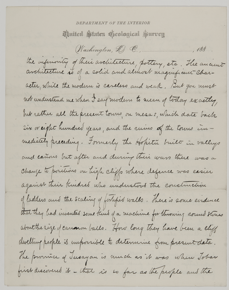 DEPARTMENT OF THE INTERIOR
United States Geological Survey
Washington, D. C. , 188
the inferiority of their architecture, pottery, etc. The ancient
architecture is of a solid and almost magnificent char-
acter, while the modern is careless and weak. But you must
not understand me when I say modern to mean of today exactly,
but rather all the present towns, on mesas, which date back
six or eight hundred years, and the ruins of the towns im-
mediately preceding. Formerly the Hopitus built in valleys
and cañons but after and during their wars there was a
change to positions on high cliffs where defence was easier
against their kindred who understood the construction
of ladders and the scaling of walls. There is some evidence
that they had invented some kind of a machine for throwing round stones
about the size of cannon balls. How long they have been a cliff
dwelling people it is impossible to determine from present data.
The province of Tusayan is much as it was when Tobar
first discovered it - that is so far as the people and the